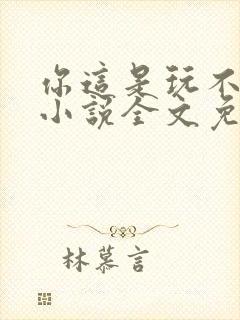 你這是玩不
小說全文免
林慕言